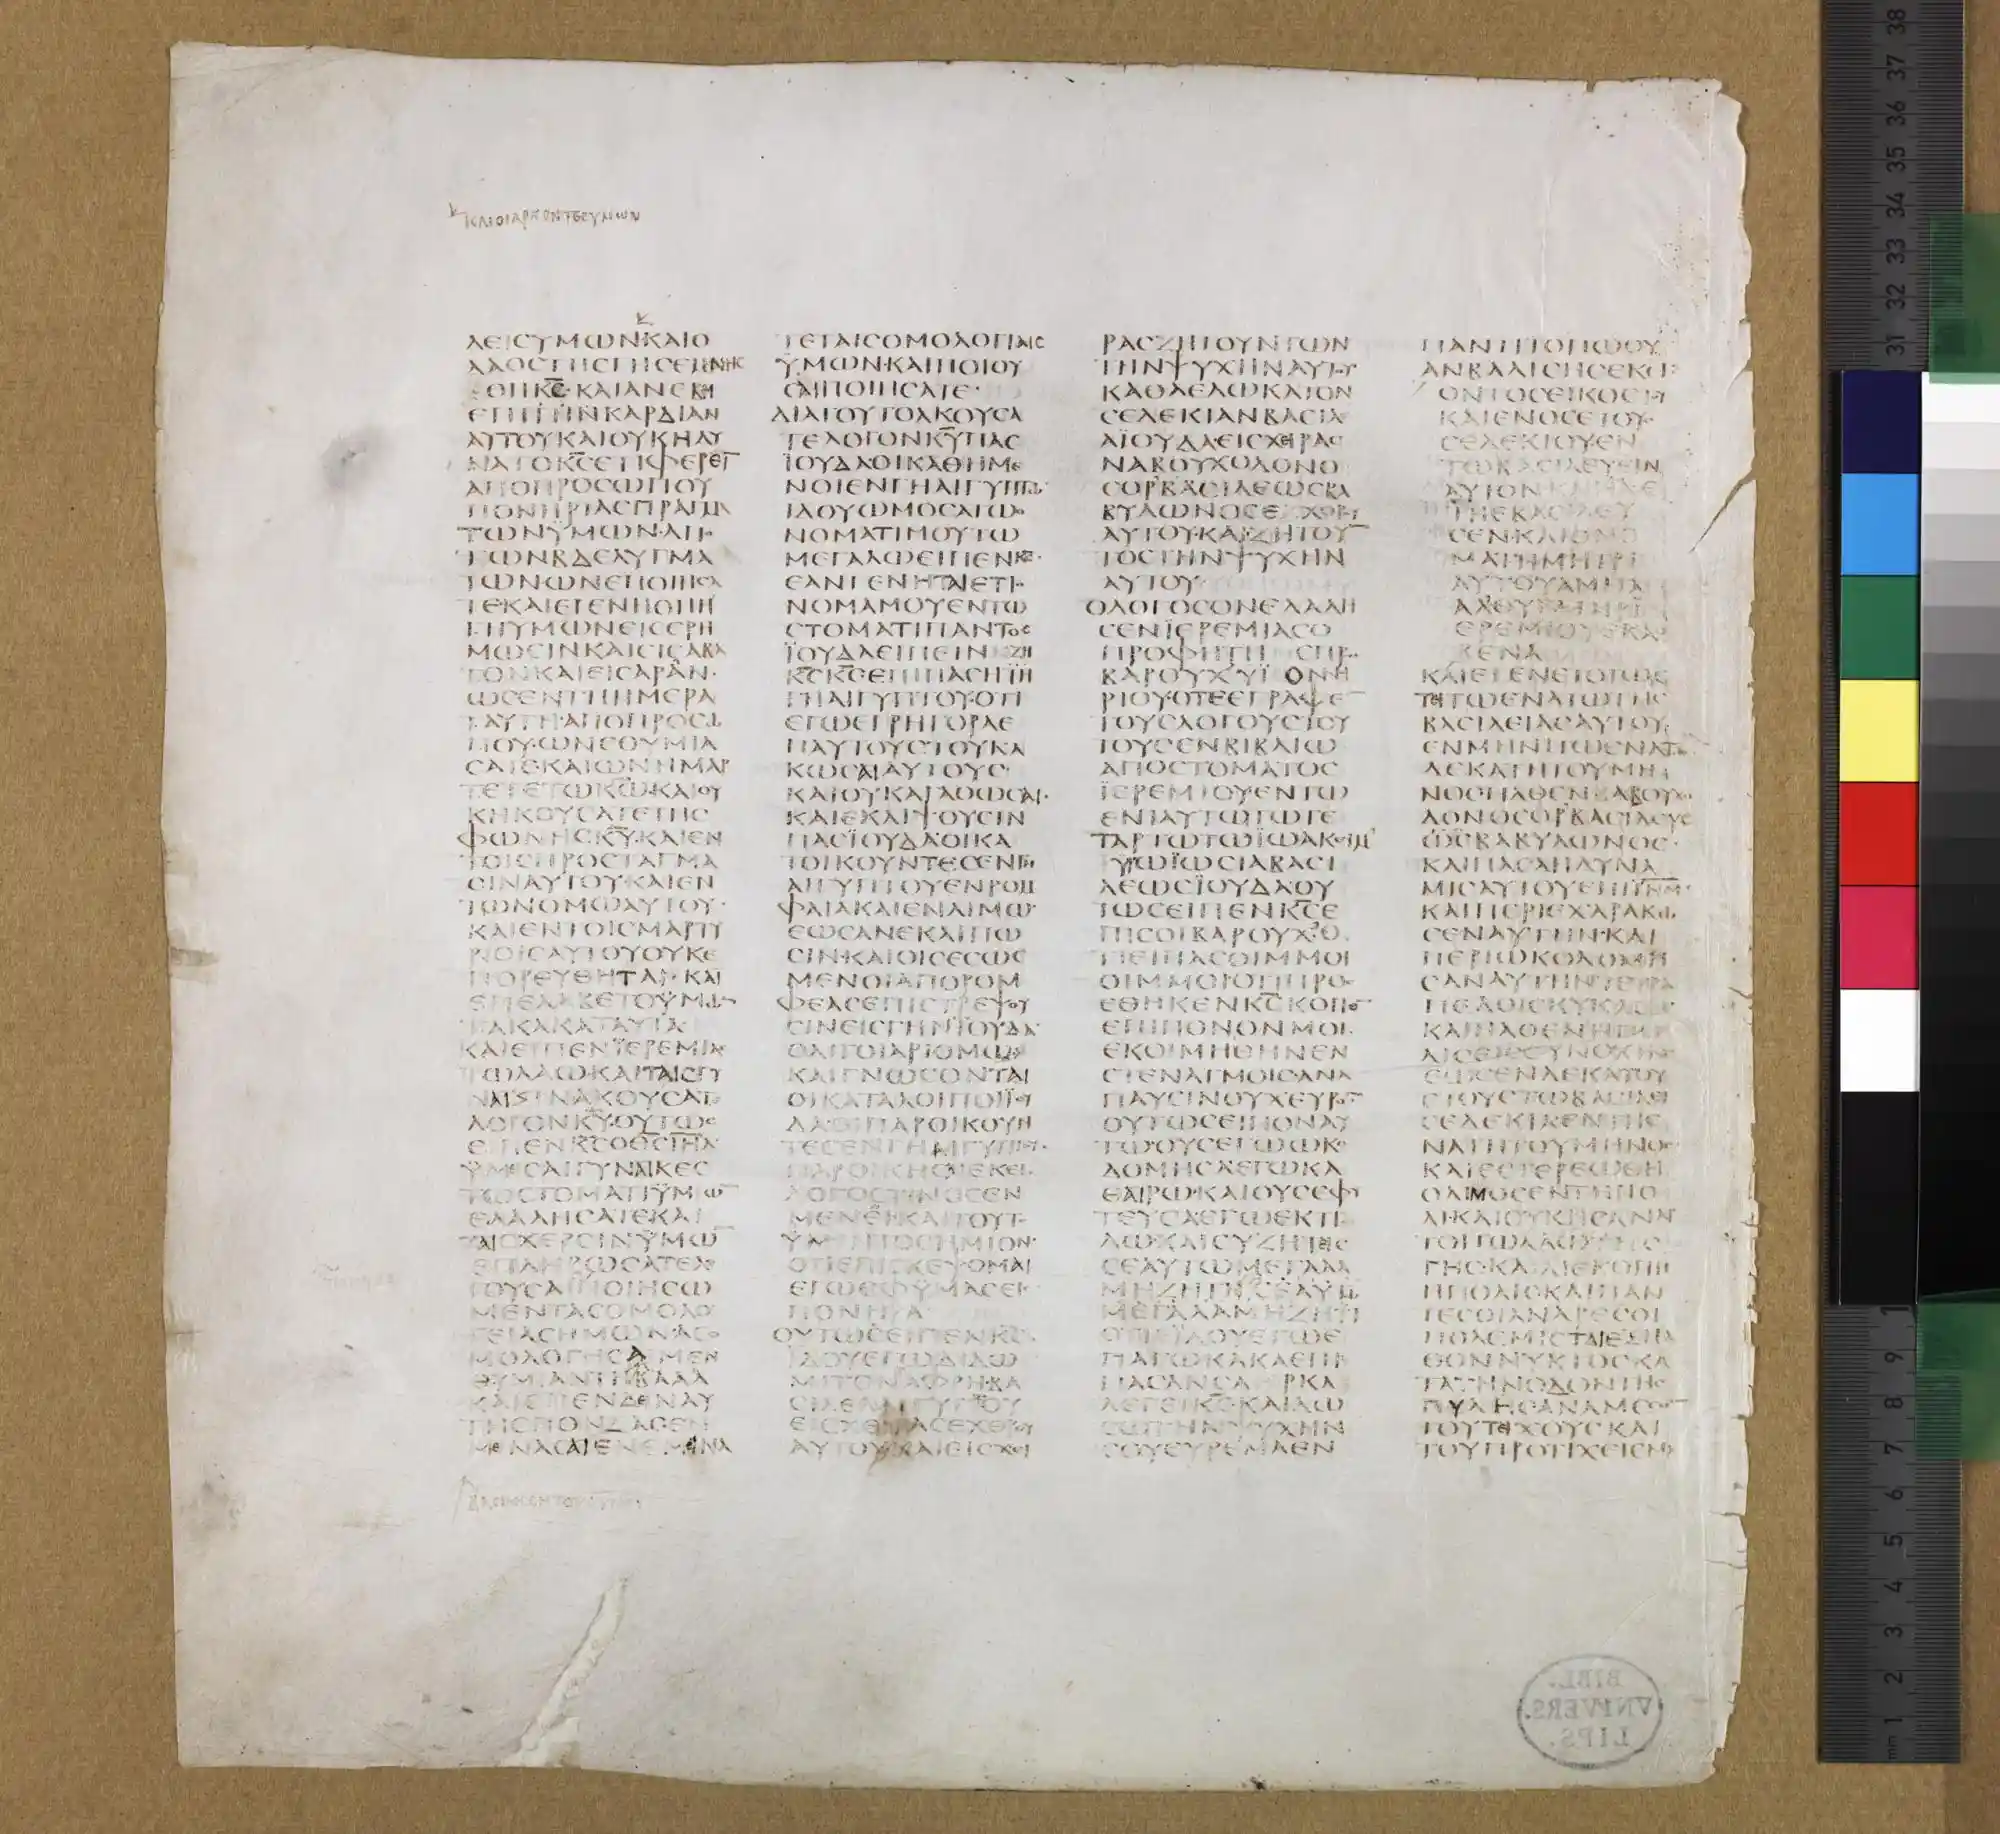 ΚΑΙΟΙΑΡΧΟΝΤΕϹΥΜΩΝ
ΛΕΙϹΥΜΩΝΚΑΙΟ
ΛΑΟϹΤΗϹΓΗϹΕΜΝΗϹ
ΘΗΚϹ·ΚΑΙΑΝΕΒΗ
ΕΠΙΤΗΝΚΑΡΔΙΑΝ
ΑΥΤΟΥΚΑΙΟΥΚΗΔΥ
ΝΑΤΟΚϹΕΤΙΦΕΡΕΙ
ΑΠΟΠΡΟϹΩΠΟΥ
ΠΟΝΗΡΙΑϹΠΡΑΓΜΑ
ΤΩΝΫΜΩΝ·ΑΠΟ
ΤΩΝΒΔΕΛΥΓΜΑ
ΤΩΝΩΝΕΠΟΙΗϹΑ
ΤΕΚΑΙΕΓΕΝΗΘΗΗ
ΓΗΥΜΩΝΕΙϹΕΡΗ
ΜΩϹΙΝΚΑΙΕΙϹΑΒΑ
ΤΟΝΚΑΙΕΙϹΑΡΑΝ·
ΩϹΕΝΤΗΗΜΕΡΑ
ΤΑΥΤΗ·ΑΠΟΠΡΟϹΩ
ΠΟΥ·ΩΝΕΘΥΜΙΑ
ϹΑΤΕΚΑΙΩΝΗΜΑΡ
ΤΕΤΕΤΩΚΩ·ΚΑΙΟΥ
ΚΗΚΟΥϹΑΤΕΤΗϹ
ΦΩΝΗϹΚΥ·ΚΑΙΕΝ
ΤΟΙϹΠΡΟϹΤΑΓΜΑ
ϹΙΝΑΥΤΟΥ·ΚΑΙΕΝ
ΤΩΝΟΜΩΑΥΤΟΥ·
ΚΑΙΕΝΤΟΙϹΜΑΡΤΥ
ΡΙΟΙϹΑΥΤΟΥΟΥΚΕ
ΠΟΡΕΥΘΗΤΑΙ·ΚΑΙ
ΕΠΕΛΑΒΕΤΟΫΜΩ
ΤΑΚΑΚΑΤΑΥΤΑ
ΚΑΙΕΙΠΕΝΪΕΡΕΜΙΑϹ
ΤΩΛΑΩ·ΚΑΙΤΑΙϹΓΥ
ΝΑΙΞΙΝΑΚΟΥϹΑΤΕ
ΛΟΓΟΝΚΥ·ΟΥΤΩϹ
ΕΙΠΕΝΚϹΟΘϹΙΗΛ
ΫΜΕΙϹΑΙΓΥΝΑΙΚΕϹ
ΤΩϹΤΟΜΑΤΙΫΜΩ
ΕΛΑΛΗϹΑΤΕΚΑΙ
ΤΑΙϹΧΕΡϹΙΝΫΜΩ
ΕΠΛΗΡΩϹΑΤΕΛΕ
ΓΟΥϹΑΙΠΟΙΗϹΩ
ΜΕΝΤΑϹΟΜΟΛΟ
ΓΕΙΑϹΗΜΩΝ·ΑϹΟ
ΜΟΛΟΓΗϹΑΜΕΝ
ΘΥΜΙΑΝΤΗΒΑΑΛ
ΚΑΙϹΠΕΝΔΕΙΝΑΥ
ΤΗϹΠΟΝΔΑϹΕΝ
ΜΕΙΝΑϹΑΙΕΝΕΜΕΙΝΑ
ΤΕΤΑΙϹΟΜΟΛΟΓΙΑΙϹ
ΫΜΩΝ·ΚΑΙΠΟΙΟΥ
ϹΑΙΠΟΙΗϹΑΤΕ·
ΔΙΑΤΟΥΤΟΑΚΟΥϹΑ
ΤΕΛΟΓΟΝΚΥΠΑϹ
ΪΟΥΔΑΟΙΚΑΘΗΜΕ
ΝΟΙΕΝΓΗΑΙΓΥΠΤΩ·
ΙΔΟΥΩΜΟϹΑΤΩΟ
ΝΟΜΑΤΙΜΟΥΤΩ
ΜΕΓΑΛΩΕΙΠΕΝΚϹ·
ΕΑΝΓΕΝΗΤΑΙΕΤΙΟ
ΝΟΜΑΜΟΥΕΝΤΩ
ϹΤΟΜΑΤΙΠΑΝΤΟϹ
ΪΟΥΔΑΕΙΠΕΙΝΖΗ
ΚϹΚϹΕΠΙΠΑϹΗΤΗ
ΓΗΑΙΓΥΠΤΟΥ·ΟΤΙ
ΕΓΩΕΓΡΗΓΟΡΑΕ
ΠΑΥΤΟΥϹΤΟΥΚΑ
ΚΩϹΑΙΑΥΤΟΥϹ·
ΚΑΙΟΥΚΑΓΑΘΩϹΑΙ·
ΚΑΙΕΚΛΙΨΟΥϹΙΝ
ΠΑϹΪΟΥΔΑΟΙΚΑ
ΤΟΙΚΟΥΝΤΕϹΕΝΓΗ
ΑΙΓΥΠΤΟΥΕΝΡΟΜ
ΦΑΙΑΚΑΙΕΝΛΙΜΩ·
ΕΩϹΑΝΕΚΛΙΠΩ
ϹΙΝ·ΚΑΙΟΙϹΕϹΩϹ
ΜΕΝΟΙΑΠΟΡΟΜ
ΦΕΑϹΕΠΙϹΤΡΕΨΟΥ
ϹΙΝΕΙϹΓΗΝΪΟΥΔΑ·
ΟΛΙΓΟΙΑΡΙΘΜΩ
ΚΑΙΓΝΩϹΟΝΤΑΙ
ΟΙΚΑΤΑΛΟΙΠΟΙΪΟΥ
ΔΑΟΙΠΑΡΟΙΚΟΥΝ
ΤΕϹΕΝΓΗΑΙΓΥΠΤΟΥ·
ΠΑΡΟΙΚΗϹΑΙΕΚΕΙ·
ΛΟΓΟϹΤΙΝΟϹΕΝ
ΜΕΝΕΙ·ΚΑΙΤΟΥΤΟ
ΫΜΙΝΤΟϹΗΜΙΟΝ·
ΟΤΙΕΠΙϹΚΕΨΟΜΑΙ
ΕΓΩΕΦΫΜΑϹΕΙϹ
ΠΟΝΗΡΑ
ΟΥΤΩϹΕΙΠΕΝΚϹ·
ΪΔΟΥΕΓΩΔΙΔΩ
ΜΙΤΟΝΑΦΡΗΒΑ
ϹΙΛΕΑΑΙΓΥΠΤΟΥ
ΕΙϹΧΕΙΡΑϹΕΧΘΡΟΥ
ΑΥΤΟΥ·ΚΑΙΕΙϹΧΕΙ
ΡΑϹΖΗΤΟΥΝΤΩΝ
ΤΗΝΨΥΧΗΝΑΥΤΟΥ·
ΚΑΘΑΕΔΩΚΑΤΟΝ
ϹΕΔΕΚΙΑΝΒΑϹΙΛΕ
ΑΪΟΥΔΑ·ΕΙϹΧΕΙΡΑϹ
ΝΑΒΟΥΧΟΔΟΝΟ
ϹΟΡΒΑϹΙΛΕΩϹΒΑ
ΒΥΛΩΝΟϹΕΧΘΡΟΥ
ΑΥΤΟΥ·ΚΑΙΖΗΤΟΥ
ΤΟϹΤΗΝΨΥΧΗΝ
ΑΥΤΟΥ·
ΟΛΟΓΟϹΟΝΕΛΑΛΗ
ϹΕΝΪΕΡΕΜΙΑϹΟ
ΠΡΟΦΗΤΗϹΠΡΟϹ
ΒΑΡΟΥΧΥΪΟΝΝΗ
ΡΙΟΥ·ΟΤΕΕΓΡΑΨΕ
ΤΟΥϹΛΟΓΟΥϹΤΟΥ
ΤΟΥϹΕΝΒΙΒΛΙΩ
ΑΠΟϹΤΟΜΑΤΟϹ
ΪΕΡΕΜΙΟΥ·ΕΝΤΩ
ΕΝΙΑΥΤΩΤΩΤΕ
ΤΑΡΤΩΤΩΪΩΑΚΕΙΜ
ΥΪΩΪΩϹΙΑΒΑϹΙ
ΛΕΩϹΪΟΥΔΑΟΥ
ΤΩϹΕΙΠΕΝΚϹΕ
ΠΙϹΟΙΒΑΡΟΥΧ·Ο
ΤΙΕΙΠΑϹΟΙΜΜΟΙ
ΟΙΜΜΟΙΟΤΙΠΡΟϹ
ΕΘΗΚΕΝΚϹΚΟΠΟ
ΕΠΙΠΟΝΟΝΜΟΙ·
ΕΚΟΙΜΗΘΗΝΕΝ
ϹΤΕΝΑΓΜΟΙϹΑΝΑ
ΠΑΥϹΙΝΟΥΧΕΥΡΟ
ΟΥΤΩϹΕΙΠΟΝΑΥ
ΤΩ·ΟΥϹΕΓΩΩΚΟ
ΔΟΜΗϹΑΕΓΩΚΑ
ΘΑΙΡΩ·ΚΑΙΟΥϹΕΦΥ
ΤΕΥϹΑΕΓΩΕΚΤΙΛ
ΛΩΚΑΙϹΥΖΗΤΕΙϹ
ϹΕΑΥΤΩΜΕΓΑΛΑ
ΜΗΖΗΤΗϹϹΕΑΥΤΩ
ΜΕΓΑΛΑΜΗΖΗΤΗ
ΟΤΙΪΔΟΥΕΓΩΕ
ΠΑΓΩΚΑΚΑΕΠΙ
ΠΑϹΑΝϹΑΡΚΑ
ΛΕΓΕΙΚϹ·ΚΑΙΔΩ
ϹΩΤΗΝΨΥΧΗΝ
ϹΟΥΕΥΡΕΜΑΕΝ
ΠΑΝΤΙΤΟΠΩΟΥ
ΑΝΒΑΔΙϹΗϹΕΚΕΙ·
ΟΝΤΟϹΕΙΚΟϹΤΟΥ
ΚΑΙΕΝΟϹΕΤΟΥϹ
ϹΕΔΕΚΙΟΥΕΝ
ΤΩΒΑϹΙΛΕΥΕΙΝ
ΑΥΤΟΝΚΑΙΕΝΔΕ
ΚΑΕΤΗΕΒΑϹΙΛΕΥ
ϹΕΝ·ΚΑΙΟΝΟ
ΜΑΤΗΜΗΤΡΙ
ΑΥΤΟΥΑΜΙΤΑ
ΑΛΘΥΓΑΤΗΡΪ
ΕΡΕΜΙΟΥΕΚΛΟ
ΒΕΝΑ
ΚΑΙΕΓΕΝΕΤΟΤΩΕ
ΤΕΙΤΩΕΝΑΤΩΤΗϹ
ΒΑϹΙΛΕΙΑϹΑΥΤΟΥ·
ΕΝΜΗΝΙΤΩΕΝΑΤΩ
ΔΕΚΑΤΗΤΟΥΜΗ
ΝΟϹΗΛΘΕΝΝΑΒΟΥΧΟ
ΔΟΝΟϹΟΡΒΑϹΙΛΕΥϹ
ΒΑΒΥΛΩΝΟϹ·
ΚΑΙΠΑϹΑΗΔΥΝΑ
ΜΙϹΑΥΤΟΥΕΠΙΪΛΗΜ·
ΚΑΙΠΕΡΙΕΧΑΡΑΚΩ
ϹΕΝΑΥΤΗΝ·ΚΑΙ
ΠΕΡΙΩΚΟΔΟΜΗ
ϹΑΝΑΥΤΗΝΤΕΤΡΑ
ΠΕΔΟΙϹΚΥΚΛΩ·
ΚΑΙΗΛΘΕΝΗΠΟΛ
ΛΙϹΕΙϹϹΥΝΟΧΗΝ
ΕΩϹΕΝΔΕΚΑΤΟΥ
ΕΤΟΥϹΤΩΒΑϹΙΛΕΙ
ϹΕΔΕΚΙΑ·ΕΝΤΗΕ
ΝΑΤΗΤΟΥΜΗΝΟϹ
ΚΑΙΕϹΤΕΡΕΩΘΗ
ΟΛΙΜΟϹΕΝΤΗΠΟ
ΛΙ·ΚΑΙΟΥΚΗϹΑΝΑΡ
ΤΟΙΤΩΛΑΩΤΗϹ
ΓΗϹ·ΚΑΙΔΙΕΚΟΠΗ
ΗΠΟΛΙϹΚΑΙΠΑΝ
ΤΕϹΟΙΑΝΔΡΕϹΟΙ
ΠΟΛΕΜΙϹΤΑΙΕΞΗΛ
ΘΟΝΝΥΚΤΟϹΚΑ
ΤΑΤΗΝΟΔΟΝΤΗϹ
ΠΥΛΗϹΑΝΑΜΕϹΟ
ΤΟΥΤΕΙΧΟΥϹΚΑΙ
ΤΟΥΠΡΟΤΙΧΕΙϹΜΑ
BIBL.
VNIVERS.
LIPS.